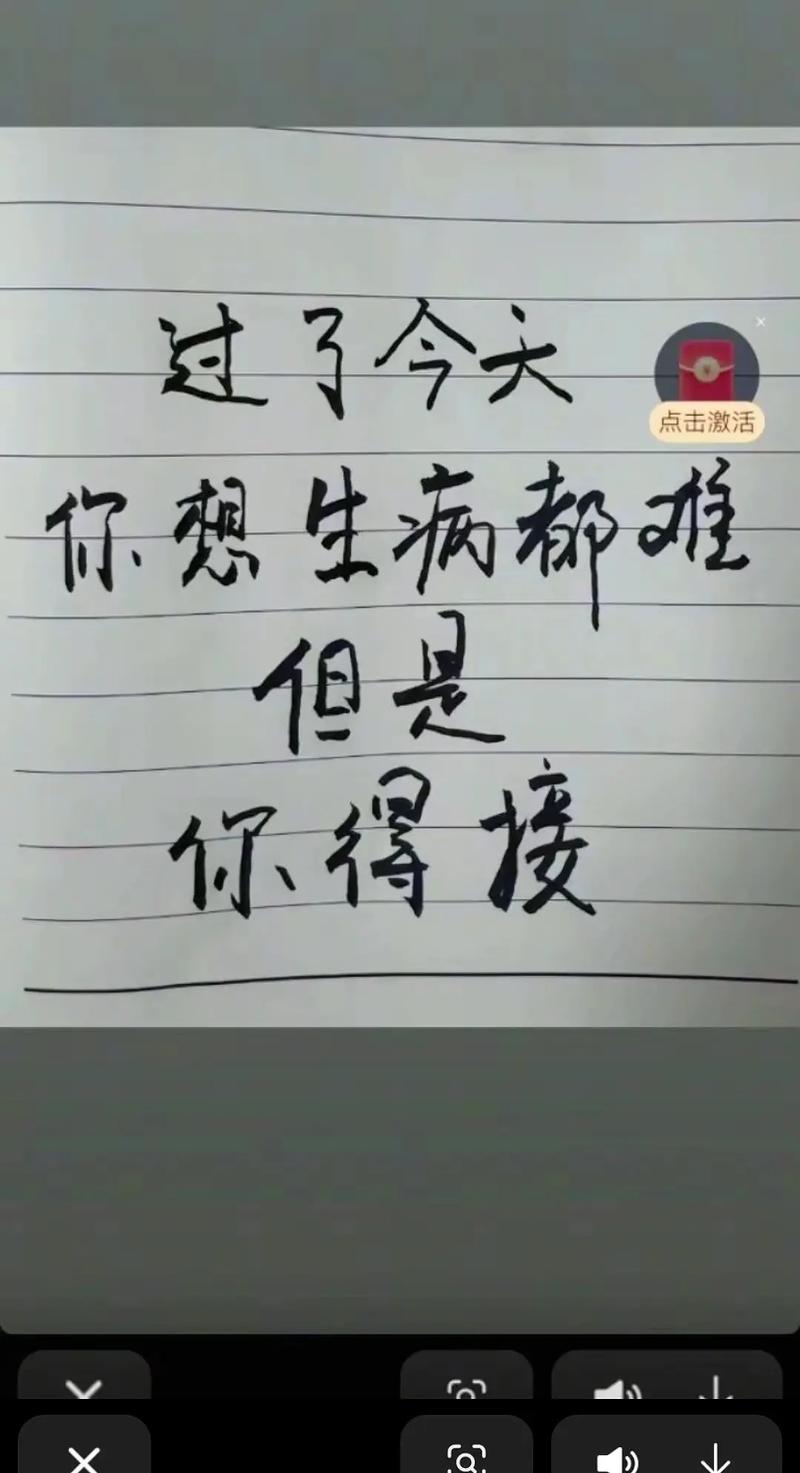 过了今天
点击激活
你想生病都难
但是
你得接